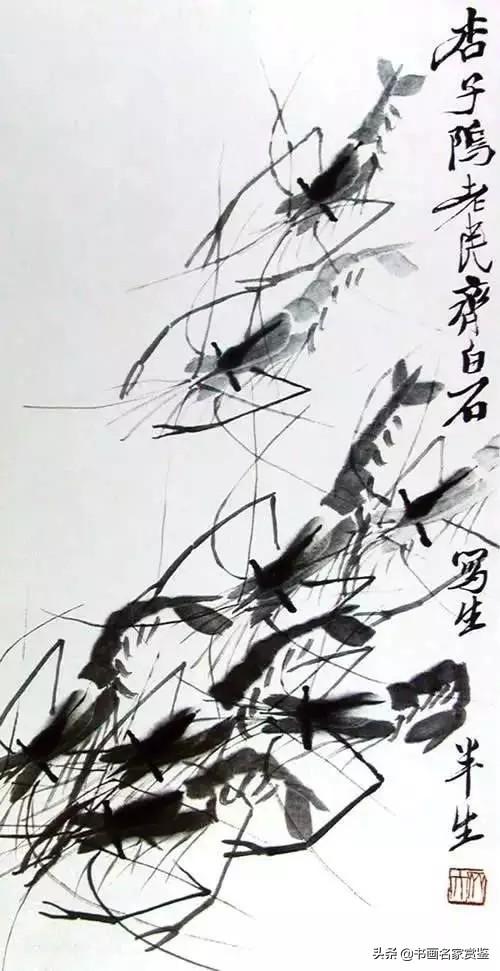 杏子隖老民齊白石
写生
半生
头条 @书画名家赏鉴